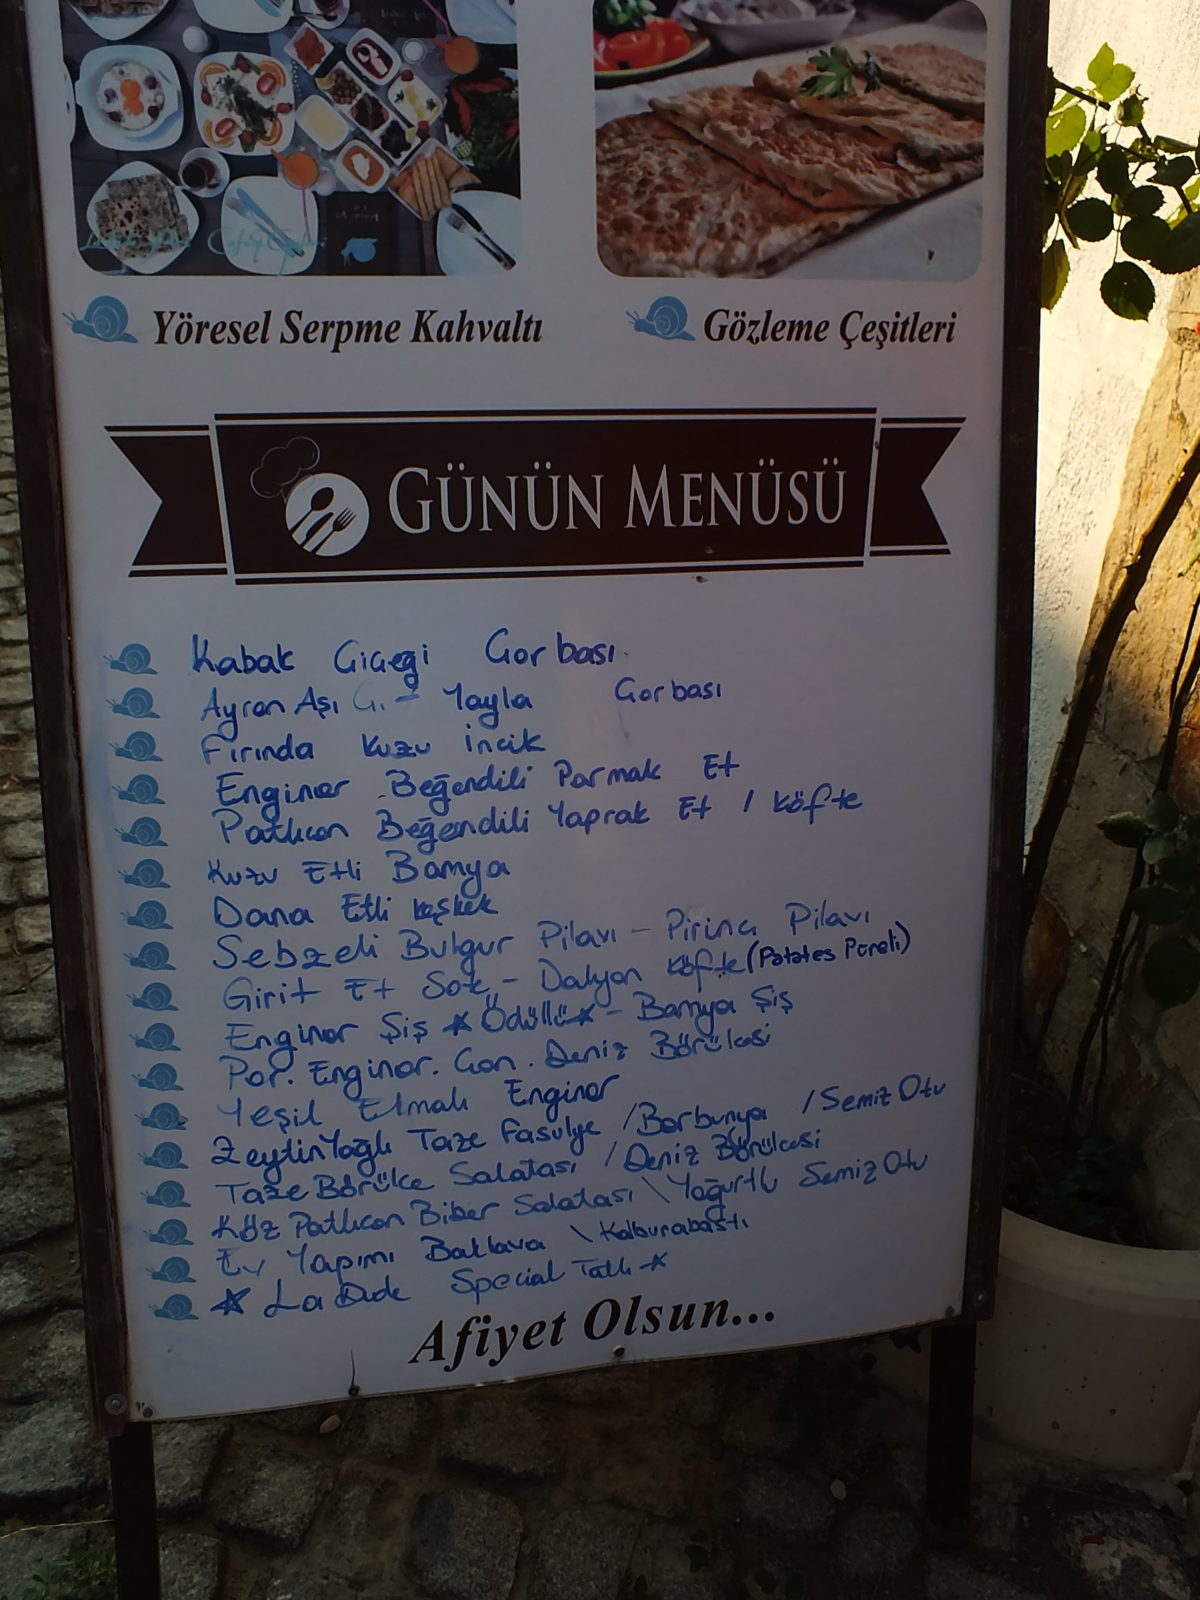 Yöresel Serpme Kahvaltı
Gözleme Çeşitleri
GÜNÜN MENÜSÜ
Kabak Çiçeği Çorbası
Ayran Aşı Ç. - Yayla Çorbası
Fırında Kuzu İncik
Enginar Beğendili Parmak Et
Patlıcan Beğendili Yaprak Et / Köfte
Kuzu Etli Bamya
Dana Etli Keşkek
Sebzeli Bulgur Pilavı - Pirinç Pilavı
Girit Et Sote - Dalyan Köfte (Patates Püreli)
Enginar Şiş ★ Ödüllü ★ - Bamya Şiş
Por. Enginar. Can. Deniz Börülcesi
Yeşil Elmalı Enginar
Zeytinyağlı Taze Fasulye / Barbunya / Semiz Otu
Taze Börülce Salatası / Deniz Börülcesi
Köz Patlıcan Biber Salatası \ Yoğurtlu Semiz Otu
Ev Yapımı Baklava \ Kalburabastı
★ La Dude Special Tatlı ★
Afiyet Olsun...